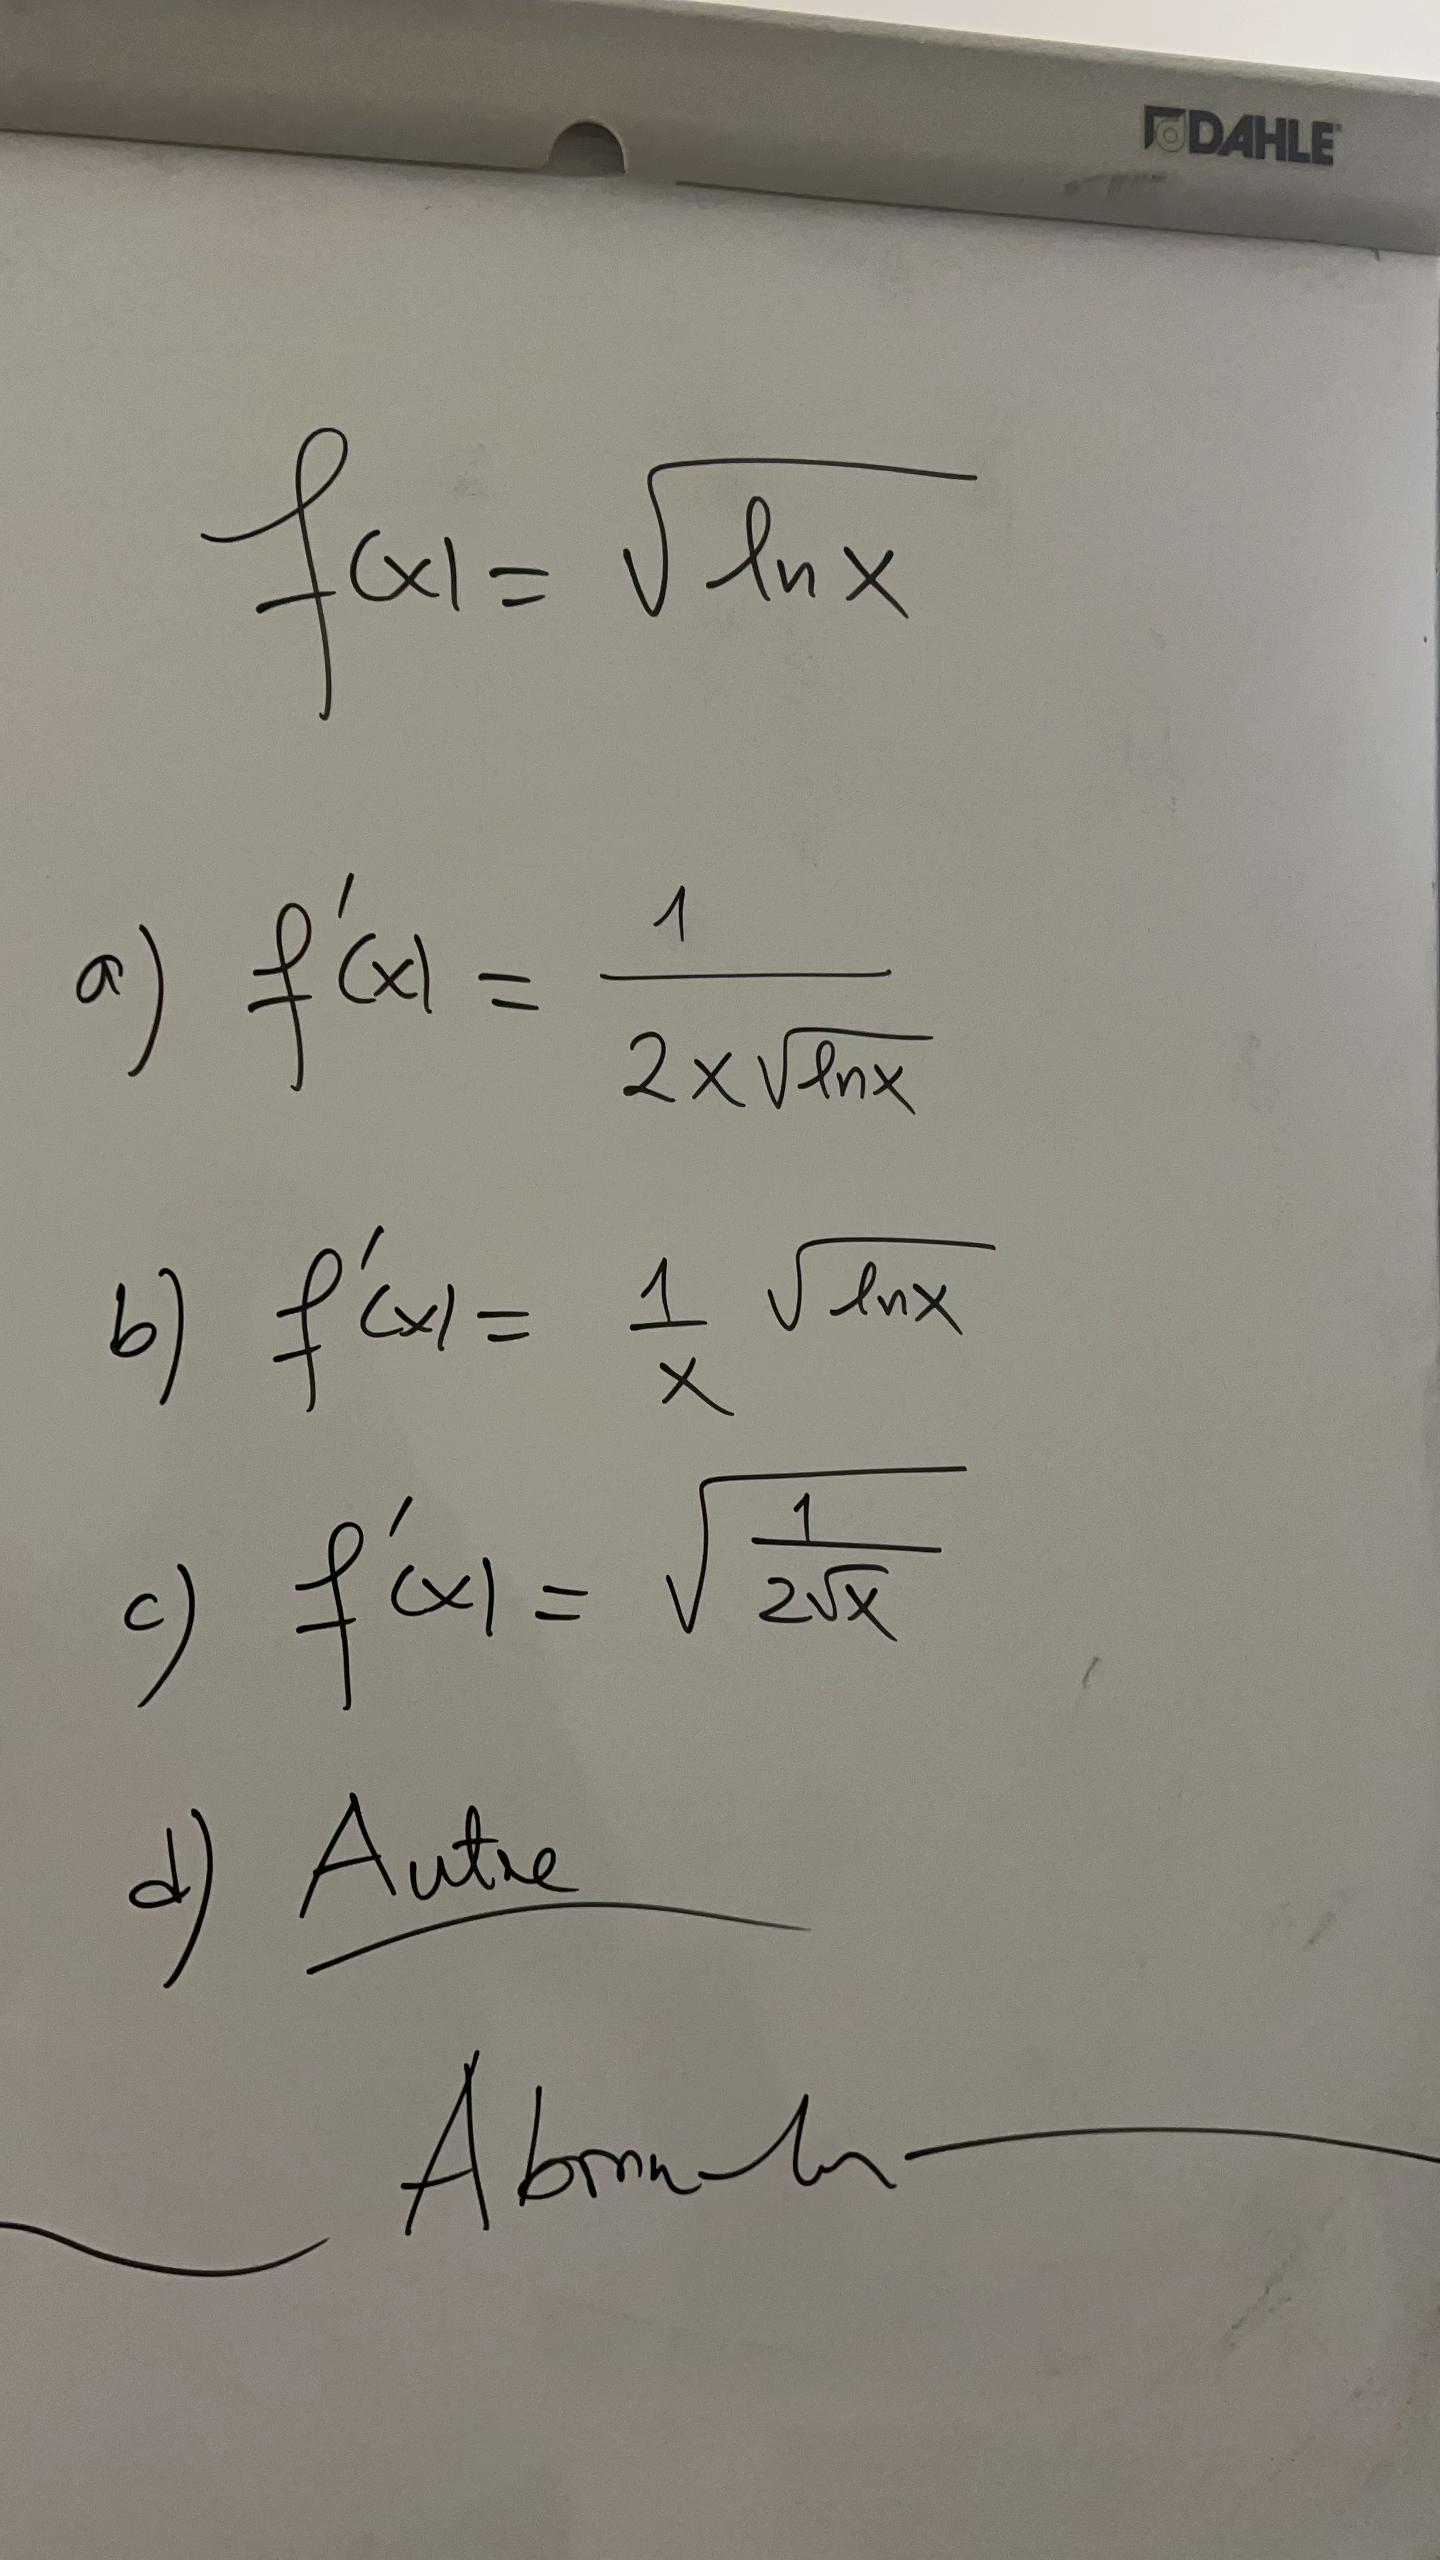 DAHLE
f(x) = √(ln x)
a) f'(x) = 1 / (2x√(ln x))
b) f'(x) = 1/x √(ln x)
c) f'(x) = √(1 / (2√x))
d) Autre